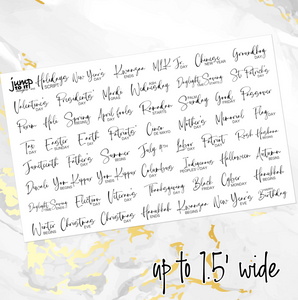 jump TO IT!
Holidays SCRIPT New Year's DAY Kwanzaa ENDS MLK Jr. DAY Chinese NEW YEAR Groundhog DAY
Valentine's DAY Presidents' DAY Mardi GRAS Ash Wednesday Daylight Saving St. Patrick's DAY
Purim Holi Spring BEGINS April Fools Ramadan STARTS Palm Sunday Good FRIDAY Passover
Tax DAY Easter Earth DAY Patriots' DAY Cinco DE MAYO Mother's DAY Memorial DAY Flag DAY
Juneteenth Father's DAY Summer BEGINS July 4th Labor DAY Patriot DAY Rosh Hashana
Diwali Yom Kippur Yom Kippur ENDS Columbus DAY Indigenous PEOPLES' DAY Halloween Autumn BEGINS
Daylight Saving Election DAY Veteran's DAY Thanksgiving DAY Black FRIDAY Cyber MONDAY Hanukkah BEGINS
Winter BEGINS Christmas EVE Christmas DAY Hanukkah ENDS Kwanzaa BEGINS New Year's EVE Birthday
up to 1.5' wide